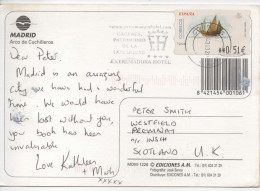 MADRID
Arco de Cuchilleros
ESPAÑA
CORREOS
**0,51€
Dear Peter,
Madrid is an amazing
city, we have had a wonderful
time. We would have
been lost without you,
your book has been
invaluable.
Love Kathleen
+ Mark
XXXXX
PETER SMITH
WESTFIELD
BY INSCH
SCOTLAND U.K
8 421454 001061
© EDICIONES A.M.